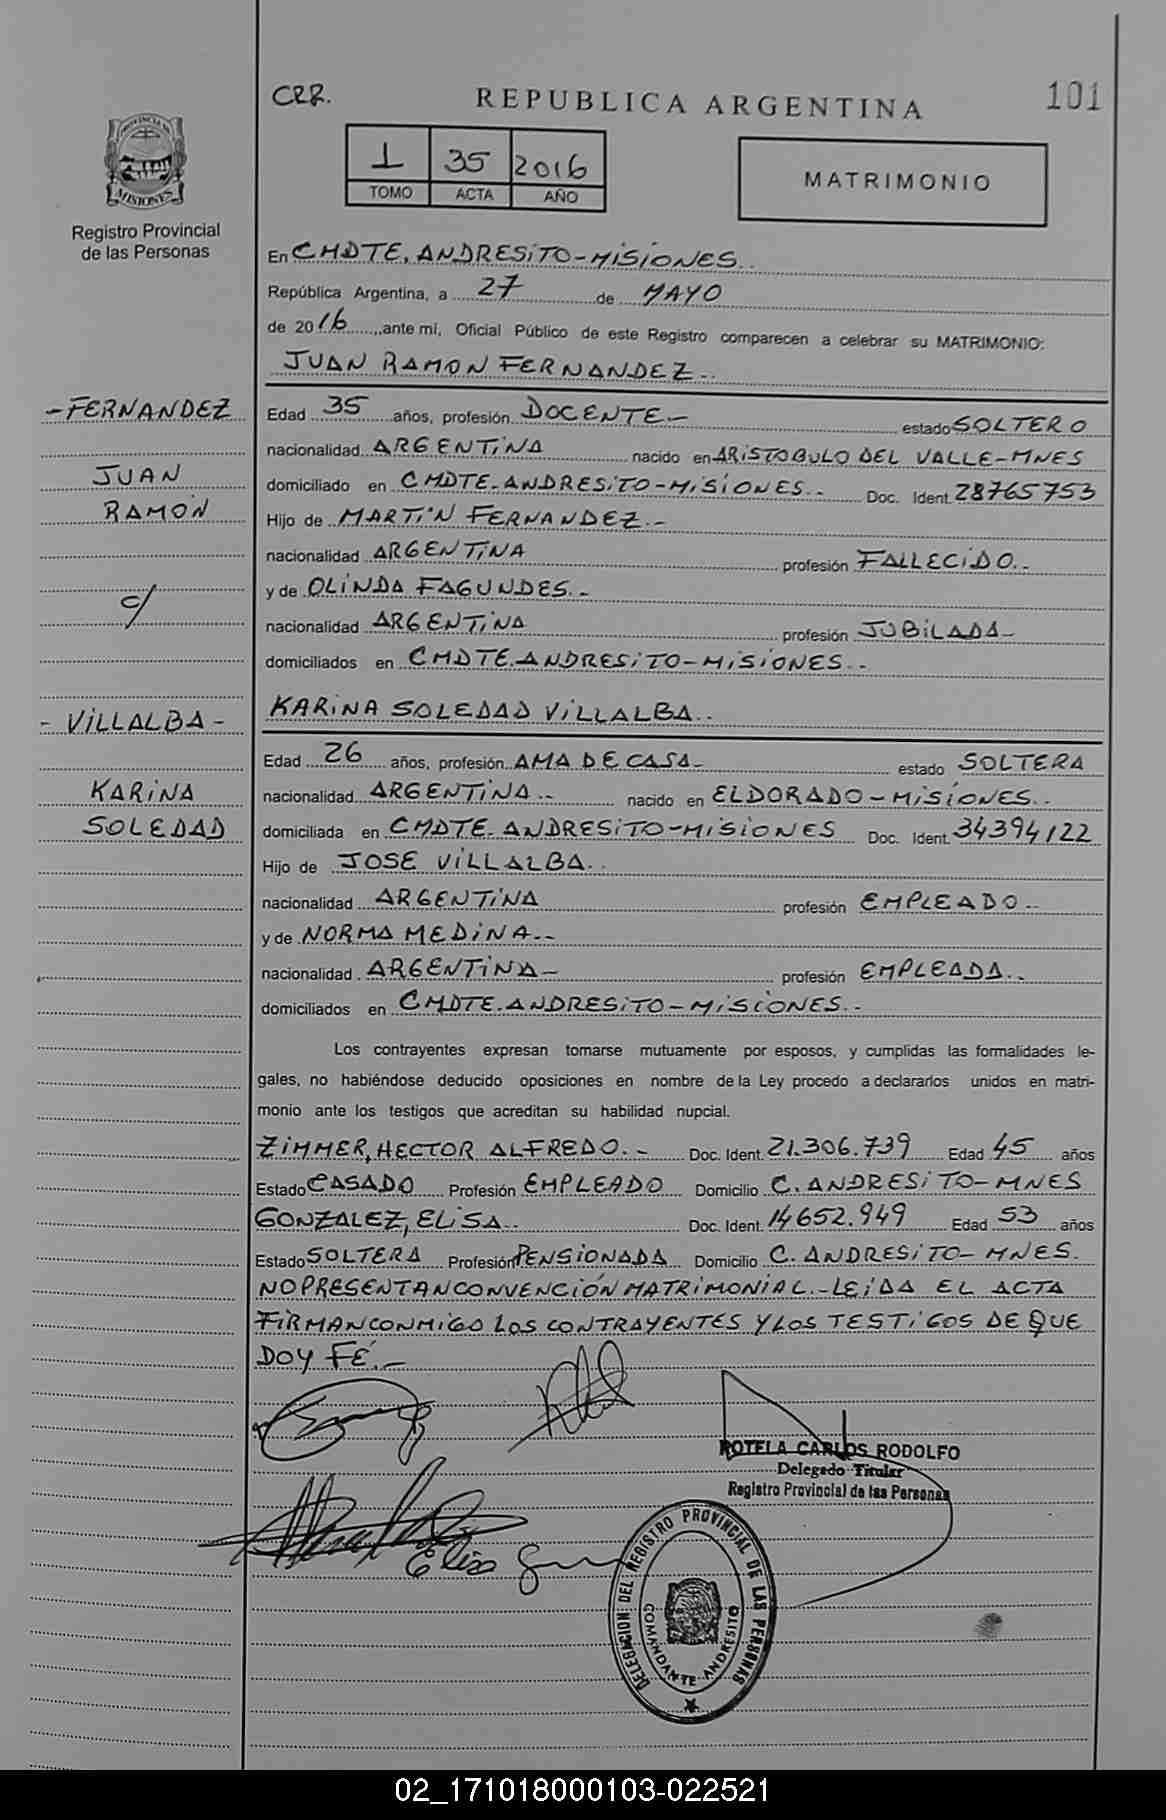 CRR.
REPUBLICA ARGENTINA
101
1 35 2016
TOMO ACTA AÑO
MATRIMONIO
PROVINCIA DE
MISIONES
Registro Provincial
de las Personas
En CMDTE. ANDRESiTO-MiSiONES..
República Argentina, a 27 de MAYO
de 2016, ante mí, Oficial Público de este Registro comparecen a celebrar su MATRIMONIO:
JUAN RAMON FERNANDEZ..
-FERNANDEZ
JUAN
RAMON
c/
-VILLALBA-
KARiNA
SOLEDAD
Edad 35 años, profesión DOCENTE.- estado SOLTERO
nacionalidad ARGENTiNA nacido en ARiSTOBULO DEL VALLE-MNES
domiciliado en CMDTE.ANDRESiTO-MiSiONES.. Doc. Ident. 28765753
Hijo de MARTiN FERNANDEZ.-
nacionalidad ARGENTiNA profesión FALLECiDO..
y de OLiNDA FAGUNDES.-
nacionalidad ARGENTiNA profesión JUBiLADA-
domiciliados en CMDTE.ANDRESiTO-MiSiONES..
KARiNA SOLEDAD ViLLALBA..
Edad 26 años, profesión AMA DE CASA- estado SOLTERA
nacionalidad ARGENTiNA.. nacido en ELDORADO-MiSiONES..
domiciliada en CMDTE. ANDRESiTO-MiSiONES Doc. Ident. 34394122
Hijo de JOSE ViLLALBA..
nacionalidad ARGENTiNA profesión EMPLEADO..
y de NORMA MEDiNA.-
nacionalidad ARGENTiNA- profesión EMPLEADA..
domiciliados en CMDTE.ANDRESiTO-MiSiONES..
Los contrayentes expresan tomarse mutuamente por esposos, y cumplidas las formalidades le-
gales, no habiéndose deducido oposiciones en nombre de la Ley procedo a declararlos unidos en matri-
monio ante los testigos que acreditan su habilidad nupcial.
ZiMMER, HECTOR ALFREDO.- Doc. Ident. 21.306.739 Edad 45 años
Estado CASADO Profesión EMPLEADO Domicilio C. ANDRESiTO-MNES
GONZALEZ, ELiSA.. Doc. Ident. 14652.949 Edad 53 años
Estado SOLTERA Profesión PENSIONADA Domicilio C. ANDRESiTO-MNES.
NO PRESENTAN CONVENCiÓN MATRIMONiAL.-LEiDA EL ACTA
FiRMAN CONMiGO LOS CONTRAYENTES Y LOS TESTiGOS DE QUE
DOY FÉ.-
ROTELA CARLOS RODOLFO
Delegado Titular
Registro Provincial de las Personas
DELEGACION DEL REGISTRO PROVINCIAL DE LAS PERSONAS
COMANDANTE ANDRESITO
02_171018000103-022521